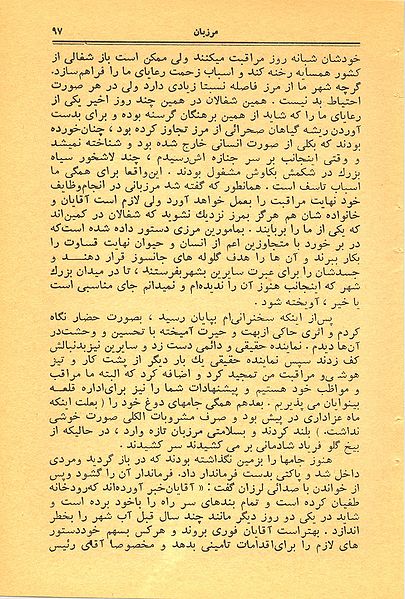 مرزبان
۹۷
خودشان شبانه روز مراقبت میکنند ولی ممکن است باز شغالی از
کشور همسایه رخنه کند و اسباب زحمت رعایای ما را فراهم‌سازد.
گرچه شهر ما از مرز فاصله نسبتا زیادی دارد ولی در هر صورت
احتیاط بد نیست . همین شغالان در همین چند روز اخیر یکی از
رعایای ما را که شاید از همین برهنگان گرسنه بوده و برای بدست
آوردن ریشه گیاهان صحرائی از مرز تجاوز کرده بود ، چنان‌خورده
بودند که بکلی از صورت انسانی خارج شده بود و شناخته نمیشد
و وقتی اینجانب بر سر جنازه اش‌رسیدم ، چند لاشخور سیاه
بزرك در شکمش بکاوش مشغول بودند . این‌واقعا برای همگی ما
اسباب تاسف است . همانطور که گفته شد مرزبانی در انجام‌وظایف
خود نهایت مراقبت را بعمل خواهد آورد ولی لازم است آقایان و
خانواده شان هم هرگز بمرز نزدیك نشوید که شغالان در کمین‌اند
که یکی از ما را بربایند . بمامورین مرزی دستور داده شده است‌که
در بر خورد با متجاوزین اعم از انسان و حیوان نهایت قساوت را
بکار ببرند و آن ها را هدف گلوله های جانسوز قرار دهند و
جسدشان را برای عبرت سایرین بشهربفرستند ، تا در میدان بزرك
شهر که اینجانب هنوز آن را ندیده‌ام و نمیدانم جای مناسبی است
یا خیر ، آویخته شود .
پس‌از اینکه سخنرانی‌ام بپایان رسید ، بصورت حضار نگاه
کردم و اثری حاکی ازبهت و حیرت آمیخته با تحسین و وحشت‌در
آن‌ها دیدم . نماینده حقیقی و دائمی دست زد و سایرین نیزبدنبالش
کف زدند سپس نماینده حقیقی یك بار دیگر از پشت کار و تیز
هوشی‌و مراقبت من تمجید کرد و اضافه کرد که البته ما مراقب
و مواظب خود هستیم و پیشنهادات شما را نیز برای‌اداره قلعه
بینوایان می پذیریم . بعدهم همگی جامهای دوغ خود را ( بعلت اینکه
ماه عزاداری در پیش بود و صرف مشروبات الکلی صورت خوشی
نداشت. ) بلند کردند و بسلامتی مرزبان تازه وارد ، در حالیکه از
بیخ گلو فریاد شادمانی بر می کشیدند سر کشیدند .
هنوز جامها را بزمین نگذاشته بودند که در باز گردید ومردی
داخل شد و پاکتی بدست فرماندار داد. فرماندار آن را گشود وپس
از خواندن با صدائی لرزان گفت : « آقایان‌خبر آورده‌اند که‌رودخانه
طغیان کرده است و تمام بندهای سر راه را باخود برده است و
شاید در یکی دو روز دیگر مانند چند سال قبل آب شهر را بخطر
اندازد . بهتراست آقایان فوری بروند و هرکس بسهم خوددستور
های لازم را برای‌اقدامات تامینی بدهد و مخصوصا آقای رئیس